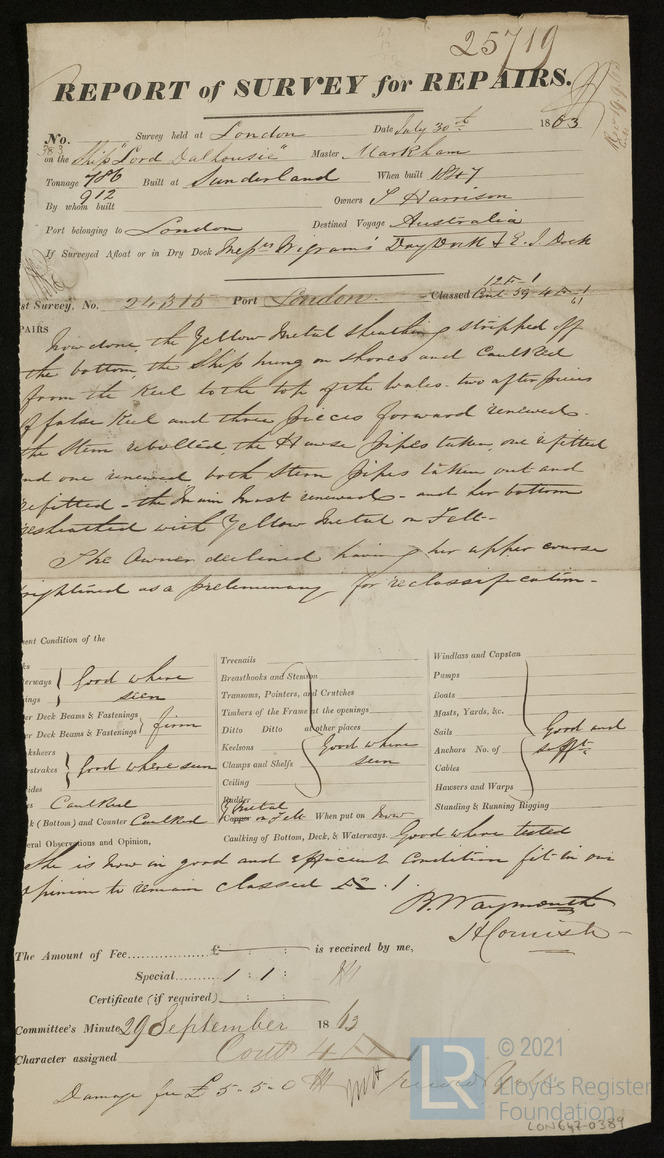 25719
REPORT of SURVEY for REPAIRS.
No. 383 Survey held at London Date July 30th 1863
on the Ship "Lord Dalhousie" Master Markham
Tonnage 786 912 Built at Sunderland When built 1847
By whom built Owners T Harrison
Port belonging to London Destined Voyage Australia
If Surveyed Afloat or in Dry Dock Messrs Wigram's Dry Dock & E. I. Dock
st Survey, No. 24315 Port London Classed 12 1 Cont 59 4 1 61
PAIRS
Now done, the Yellow Metal sheathing stripped off
the bottom, the Ship hung on shores and Caulked
from the Keel to the top of the Wales. two after pieces
of false Keel and three pieces forward renewed.
the Stem rebolted, the Hawse pipes taken, one refitted
nd one renewed both Stern pipes taken out and
refitted - the Main Mast renewed - and her bottom
resheathed with Yellow Metal on Felt-
The Owner declined having her upper course
rightined as a preliminary for reclassification-
ent Condition of the
ks
terways } Good where
ings } seen
er Deck Beams & Fastenings } firm
er Deck Beams & Fastenings
ksheers
rstrakes } Good where seen
ides
s Caulked
k (Bottom) and Counter Caulked
Treenails
Breasthooks and Stemson
Transoms, Pointers, and Crutches
Timbers of the Frame at the openings
Ditto Ditto at other places
Keelsons Good where
Clamps and Shelfs seen
Ceiling
Rudder
Y Metal
Copper on Felt When put on Now
Windlass and Capstan
Pumps
Boats
Masts, Yards, &c.
Sails Good and
Anchors No. of sufft
Cables
Hawsers and Warps
Standing & Running Rigging
Caulking of Bottom, Deck, & Waterways. Good where tested
eral Observations and Opinion,
She is now in good and efficient condition fit in our
opinion to remain classed Æ 1.
B. Waymouth
H Cornish
The Amount of Fee £ : : is received by me,
Special 1 : 1 :
Certificate (if required) : :
Committee's Minute 29 September 1863
Character assigned Contd 4 Æ 1
Damage fee £ 5-5-0
LR © 2021
Lloyd's Register
Foundation
LON647-0389